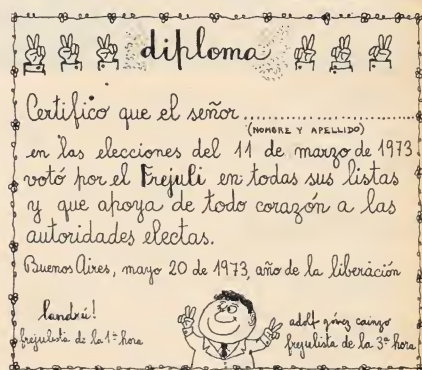 diploma
Certifico que el señor ........................
(NOMBRE Y APELLIDO)
en las elecciones del 11 de marzo de 1973
votó por el Frejuli en todas sus listas
y que apoya de todo corazón a las
autoridades electas.
Buenos Aires, mayo 20 de 1973, año de la liberación
landrú!
frejulista de la 1ª hora
adolf gómez cainzo
frejulista de la 3ª hora